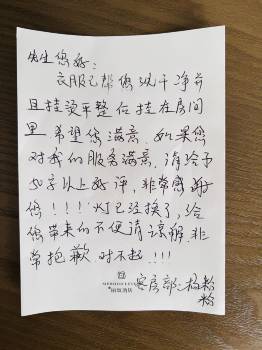 先生您好：
衣服已帮您洗干净并
且挂烫平整位挂在房间
里希望您满意.如果您
对我的服务满意,请给予
50字以上好评,非常感谢
您!!!!灯已经换了,给
您带来的不便请谅解.非
常抱歉.对不起!!!
客房部:杨粉
粉